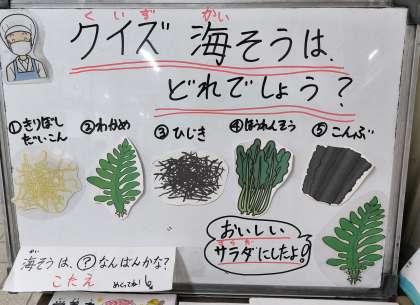 くいず かい
クイズ 海そうは、
どれでしょう?
①きりぼし
だいこん
②わかめ
③ひじき
④ほうれんそう
⑤こんぶ
おいしい
サラダにしたよ!
かい
海そうは、?なんばんかな?
こたえ めくってね!